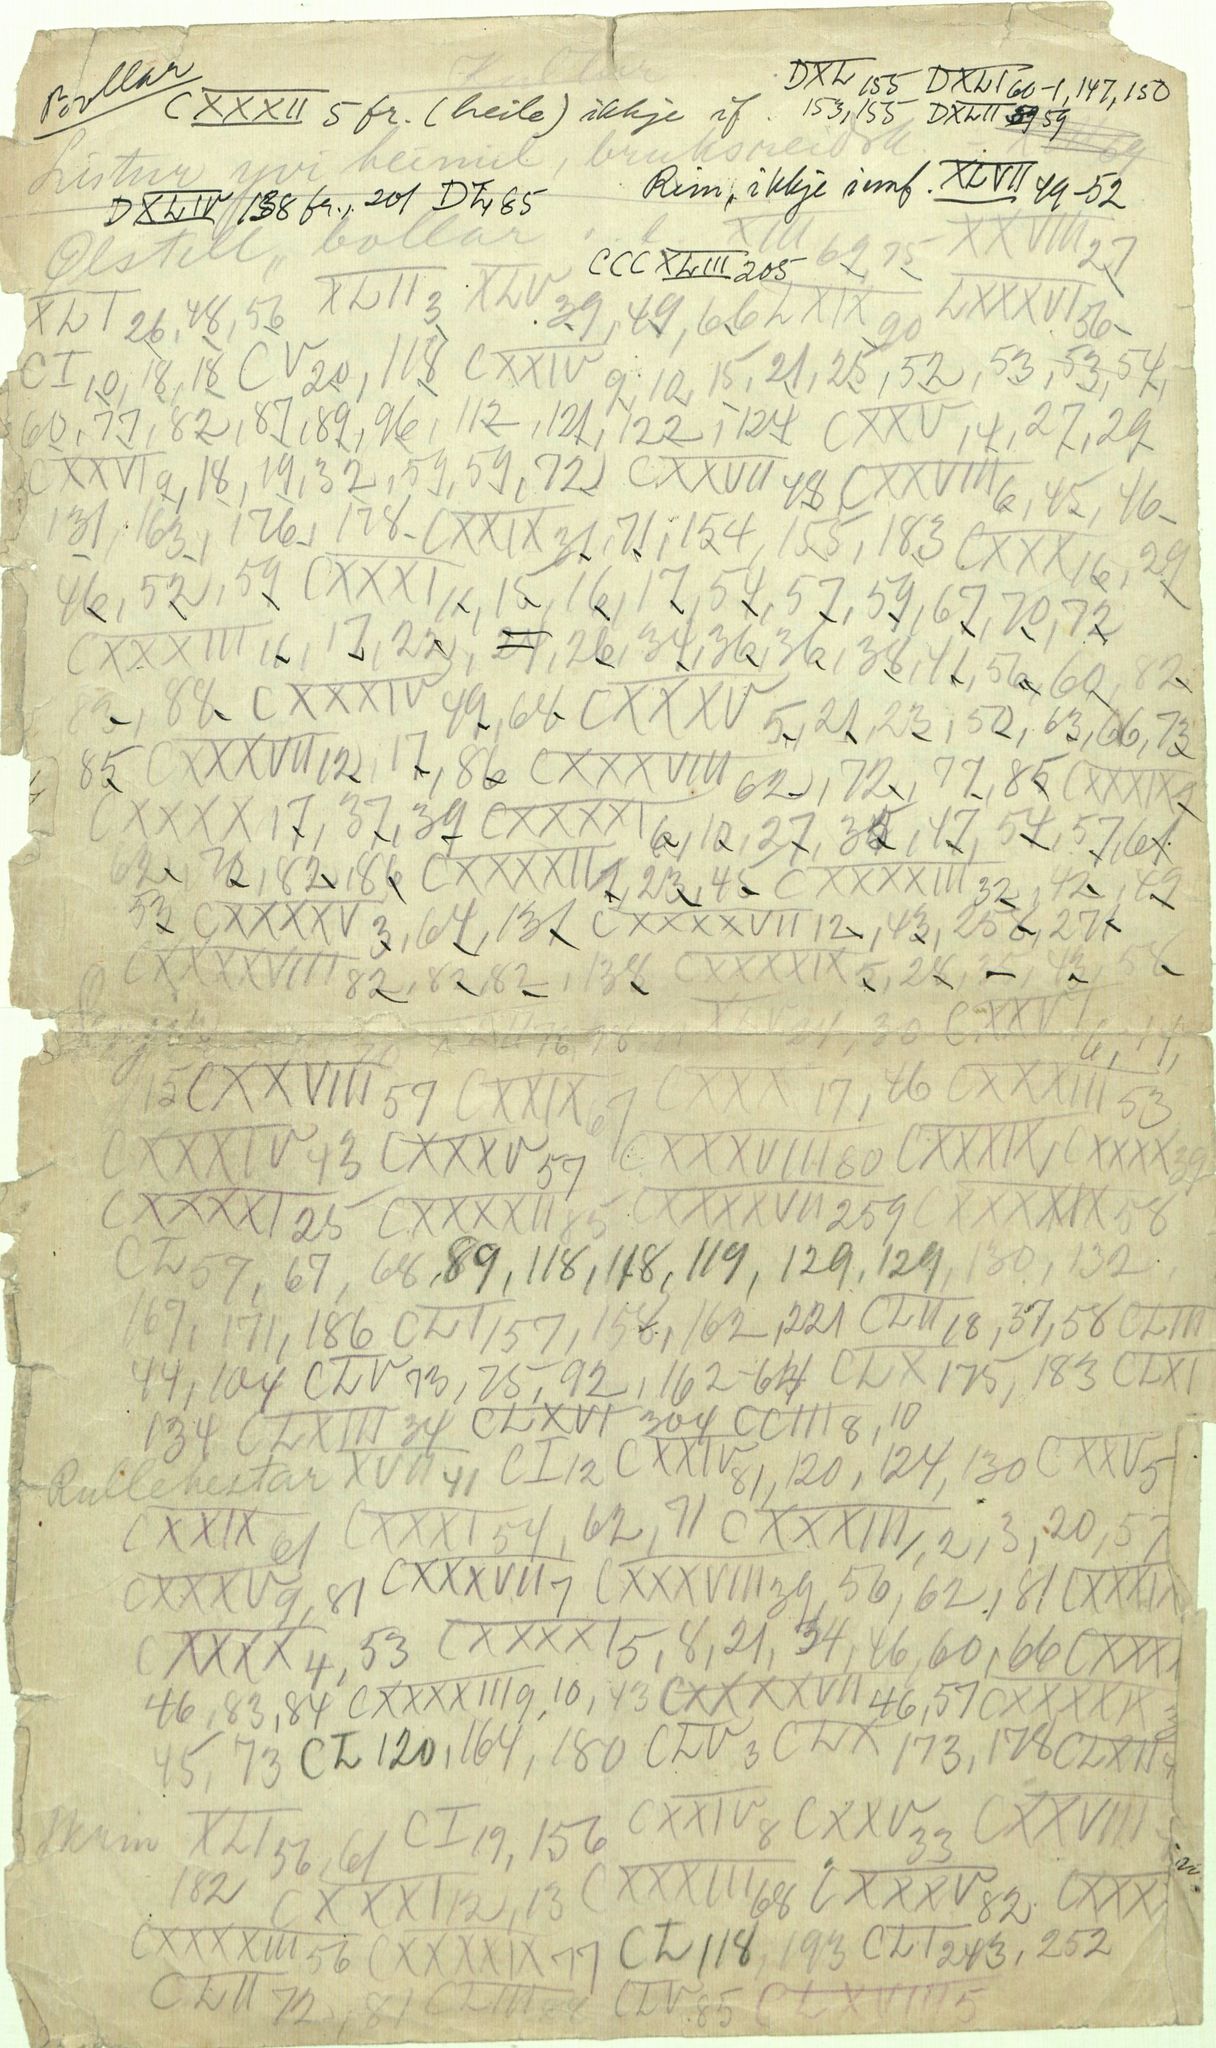 Bollar
CXXXII 5 fr. (heile) ikkje if.
DXL 155 DXLI 60-1, 147, 150
153, 155 DXLII 59
Listur yvi heimil, bruksreidsk.
DXLIV 138 fr., 201 DL, 85
Rim, ikkje innf. XLVII 49-52
Ølstell, bollar XIII 69, 75 XXVIII 27
CCCXLIII 205
XLI 26, 48, 56 XLII 3 XLV 39, 49, 66 LXIX 90 LXXXVI 56
CI 10, 18, 18 CV 20, 118 CXXIV 9, 12, 15, 21, 25, 52, 53, 53, 54,
60, 77, 82, 87, 89, 96, 112, 121, 122, 124 CXXV 14, 27, 29
CXXVI 9, 18, 19, 32, 59, 59, 72 CXXVII 48 CXXVIII 6, 45, 46
131, 163, 176, 178 CXXIX 31, 71, 154, 155, 183 CXXX 16, 29
46, 52, 59 CXXXI 11, 15, 16, 17, 54, 57, 59, 67, 70, 72
CXXXIII 11, 17, 22, 26, 34, 36, 36, 38, 41, 56, 60, 82
88 CXXXIV 49, 68 CXXXV 5, 21, 23, 50, 63, 66, 73
85 CXXXVII 12, 17, 86 CXXXVIII 62, 72, 77, 85 CXXXIX
CXXXX 17, 37, 39 CXXXXI 6, 12, 27, 35, 47, 54, 57, 61
62, 72, 82, 86 CXXXXII 2, 23, 45 CXXXXIII 32, 42, 49
53 CXXXXV 3, 64, 131 CXXXXVII 12, 43, 258, 271
CXXXXVIII 82, 82, 82, 138 CXXXXIX 5, 28, 35, 43, 58
30 CXXVI 6, 14,
15 CXXVIII 57 CXXIX 67 CXXX 17, 46 CXXXIII 53
CXXXIV 43 CXXXV 57 CXXXVIII 80 CXXXIX CXXXX 39
CXXXXI 25 CXXXXII 85 CXXXXVII 259 CXXXXIX 58
CL 57, 67, 68, 89, 118, 118, 119, 129, 129, 130, 132
169, 171, 186 CLI 157, 158, 162, 221 CLII 18, 37, 58 CLIII
44, 104 CLV 73, 75, 92, 162-64 CLX 175, 183 CLXI
134 CLXIII 34 CLXVI 304 CCIII 8, 10
Rullehestar XVII 41 CI 12 CXXIV 81, 120, 124, 130 CXXV 5
CXXIX 61 CXXXI 54, 62, 71 CXXXIII 1, 2, 3, 20, 57
CXXXV 9, 81 CXXXVII 7 CXXXVIII 39, 56, 62, 81 CXXXIX
CXXXX 4, 53 CXXXXI 5, 8, 21, 34, 46, 60, 66 CXXX
46, 83, 84 CXXXXIII 9, 10, 43 CXXXXVII 46, 57 CXXXXIX
45, 73 CL 120, 164, 180 CLV 3 CLX 173, 178 CLXII
XLI 56, 61 CI 19, 156 CXXIV 8 CXXV 33 CXXVIII
182 CXXXI 12, 13 CXXXIII 68 CXXXV 82 CXXX
CXXXXIII 56 CXXXXIX 77 CL 118, 193 CLI 243, 252
CLII 72, 81 CLIII CLV 85 CLXVIII 5